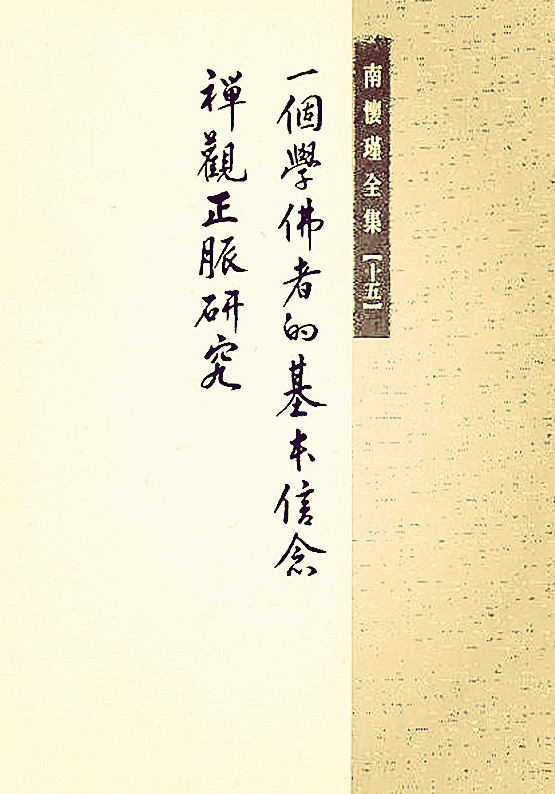 南懷瑾全集【十五】
一個學佛者的基本信念
禪觀正脈研究